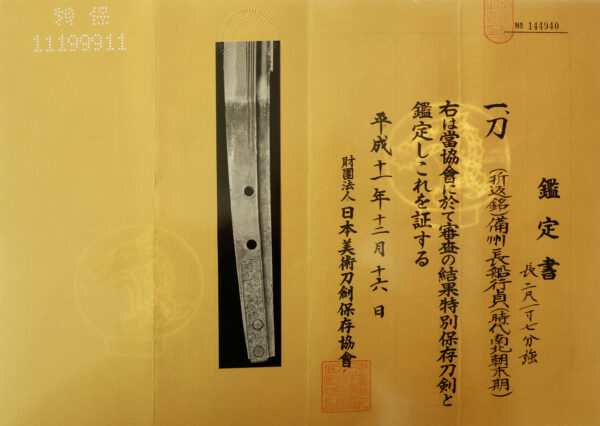 № 144940
鑑定書
一、刀
(折返銘)備州長船行貞(時代南北朝末期)
長二尺一寸七分強
右は當協會に於て審査の結果特別保存刀剣と
鑑定しこれを証する
平成十一年十二月十六日
財團法人 日本美術刀劍保存協會
特保
11199911